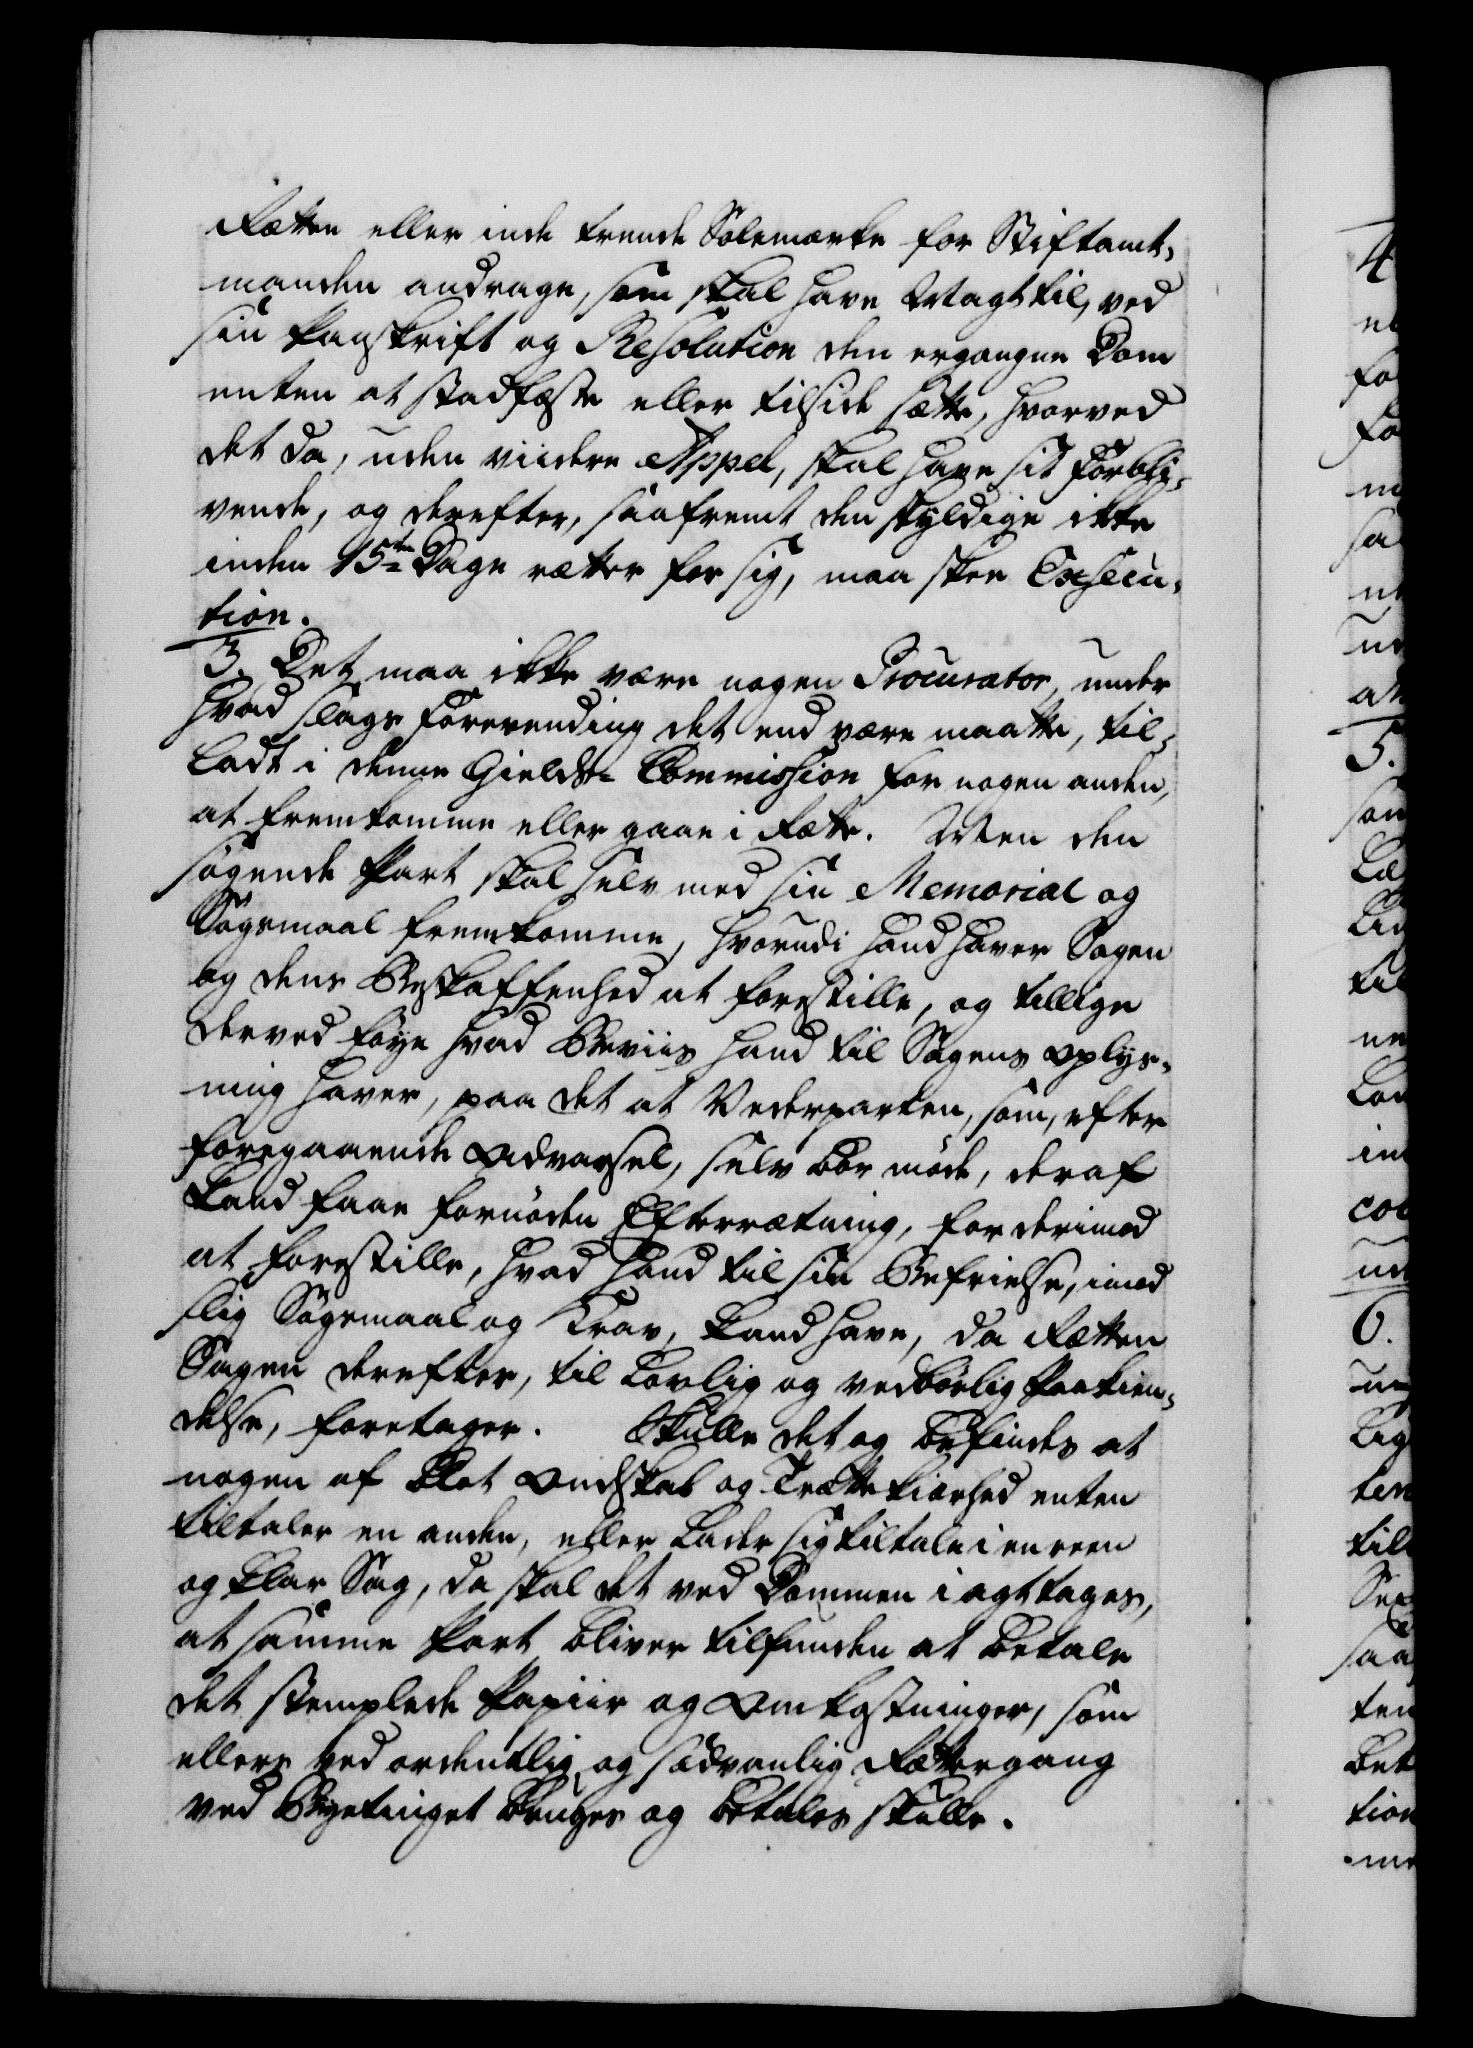 Rætten eller inde trende Solemærke for Stiftamt-
manden andrage, som skal have Magt til, ved
sin Paaskrift og Resolution den ergangne Dom
enten at stadfæste eller tilside sætte, hvorved
det da, uden viidere Appel, skal have sit Forbli-
vende, og derefter, saafremt den skyldige ikke
inden 15ten Dage retter for sig, maa skee Execu-
tion.
3. Det maa ikke være nogen Procurator, under
hvad slags Forevending det end være maatte, til-
ladt i denne Gields- Commission for nogen anden,
at fremkomme eller gaae i Rætte. Men den
søgende Part skal selv med sin Memorial og
Søgemaal fremkomme, hvorudi hand haver Sagen
og dens Beskaffenhed at forestille, og tillige
derved føye hvad Beviis hand til Sagens Oplys-
ning haver, paa det at Vederparten, som, efter
foregaaende Advarsel, selv bør møde, deraf
kand faae fornøden Efterrætning, for derimod
at forestille, hvad hand til sin Befrielse, imod
slig Søgemaal og Krav, kand have, da Rætten
Sagen derefter, til Lovlig og vedbørlig Paakien-
delse, foretager. Skulle det og befindes at
nogen af blot Ondskab og Trættekiærhed enten
tiltaler en anden, eller lader sig tiltale i en reen
og klar Sag, da skal det ved Dommen i agttages,
at samme Part bliver tilfunden at betale
det stemplede Papiir og Omkostninger, som
ellers ved ordentlig og sædvanlig Rættergang
ved Byetinget bruges og betales skulle.